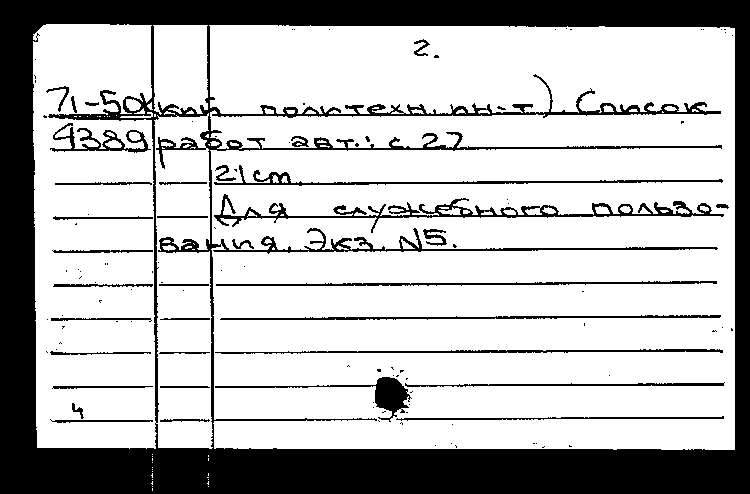 2.
71-50 кий политехн. ин-т). Список
4389 работ авт.: с. 27
21 cm.
Для служебного пользо-
вания. Экз. N5.
4